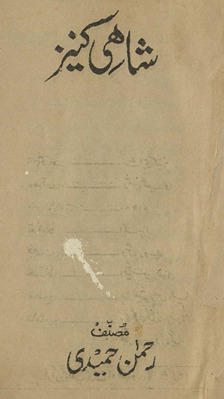 شاهی کنیز
مصنّف
رحمٰن حمیدی